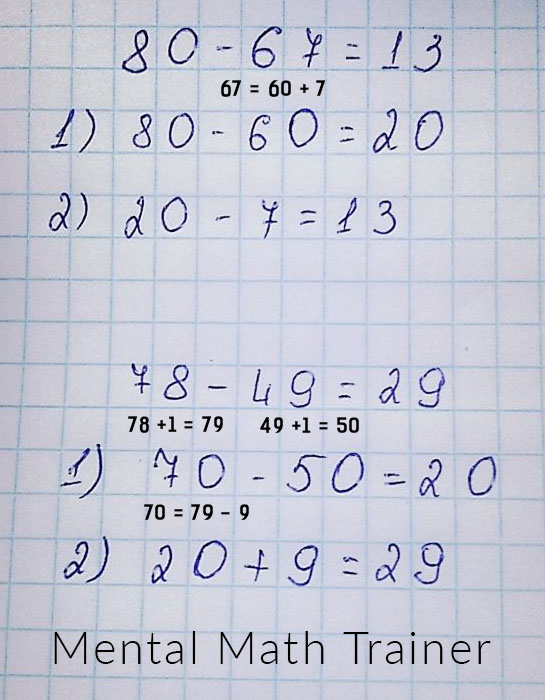 80 - 67 = 13
67 = 60 + 7
1) 80 - 60 = 20
2) 20 - 7 = 13
78 - 49 = 29
78 +1 = 79 49 +1 = 50
1) 70 - 50 = 20
70 = 79 - 9
2) 20 + 9 = 29
Mental Math Trainer